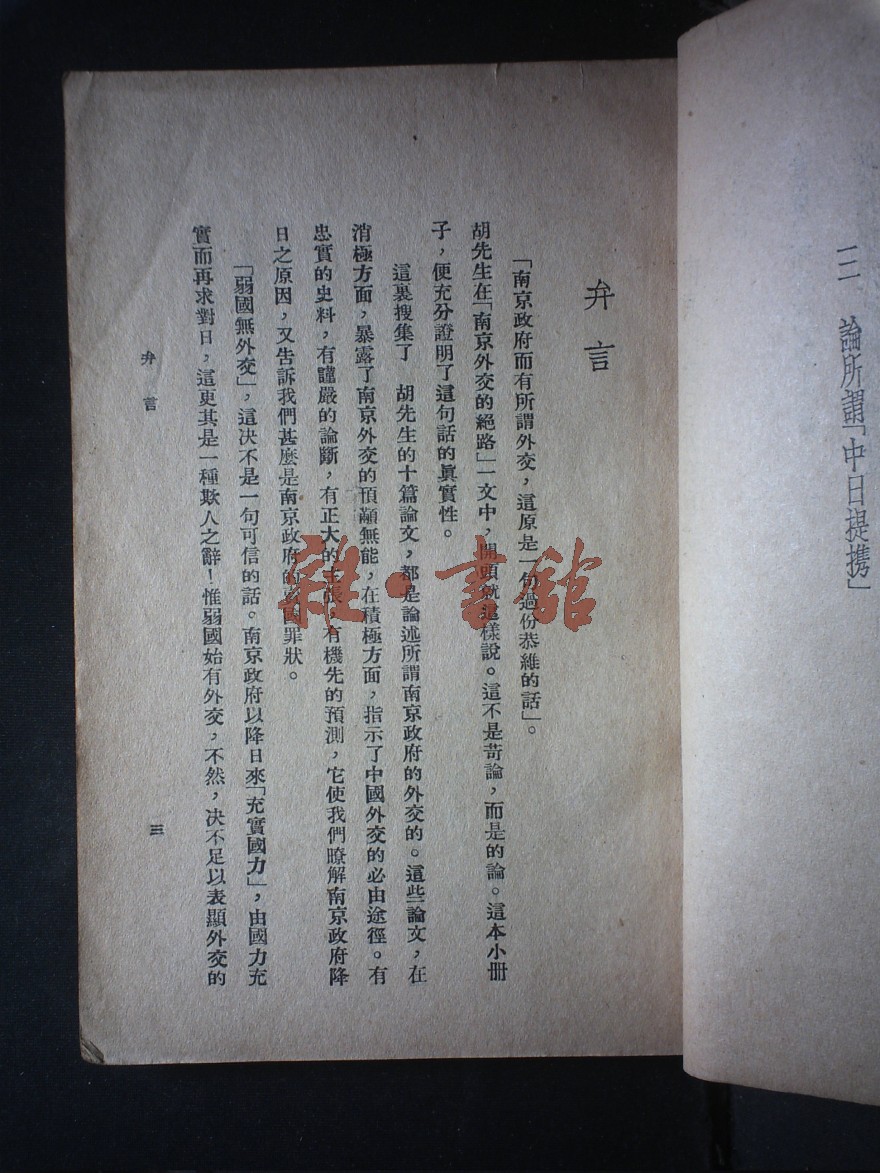 論所謂「中日提携」
弁言
「南京政府而有所謂外交，這原是一句過份恭維的話」。
胡先生在「南京外交的絕路」一文中，開頭就這樣說。這不是苛論，而是的論。這本小册
子，便充分證明了這句話的眞實性。
這裏搜集了　胡先生的十篇論文，都是論述所謂南京政府的外交的。這些論文，在
消極方面，暴露了南京外交的顸顢無能，在積極方面，指示了中國外交的必由途徑。有
忠實的史料，有謹嚴的論斷，有正大的主張，有機先的預測，它使我們暸解南京政府降
日之原因，又告訴我們甚麼是南京政府的賣國罪狀。
「弱國無外交」，這決不是一句可信的話。南京政府以降日來「充實國力」，由國力充
實而再求對日，這更其是一種欺人之辭！惟弱國始有外交，不然，决不足以表顯外交的
弁言
三
雜·書館